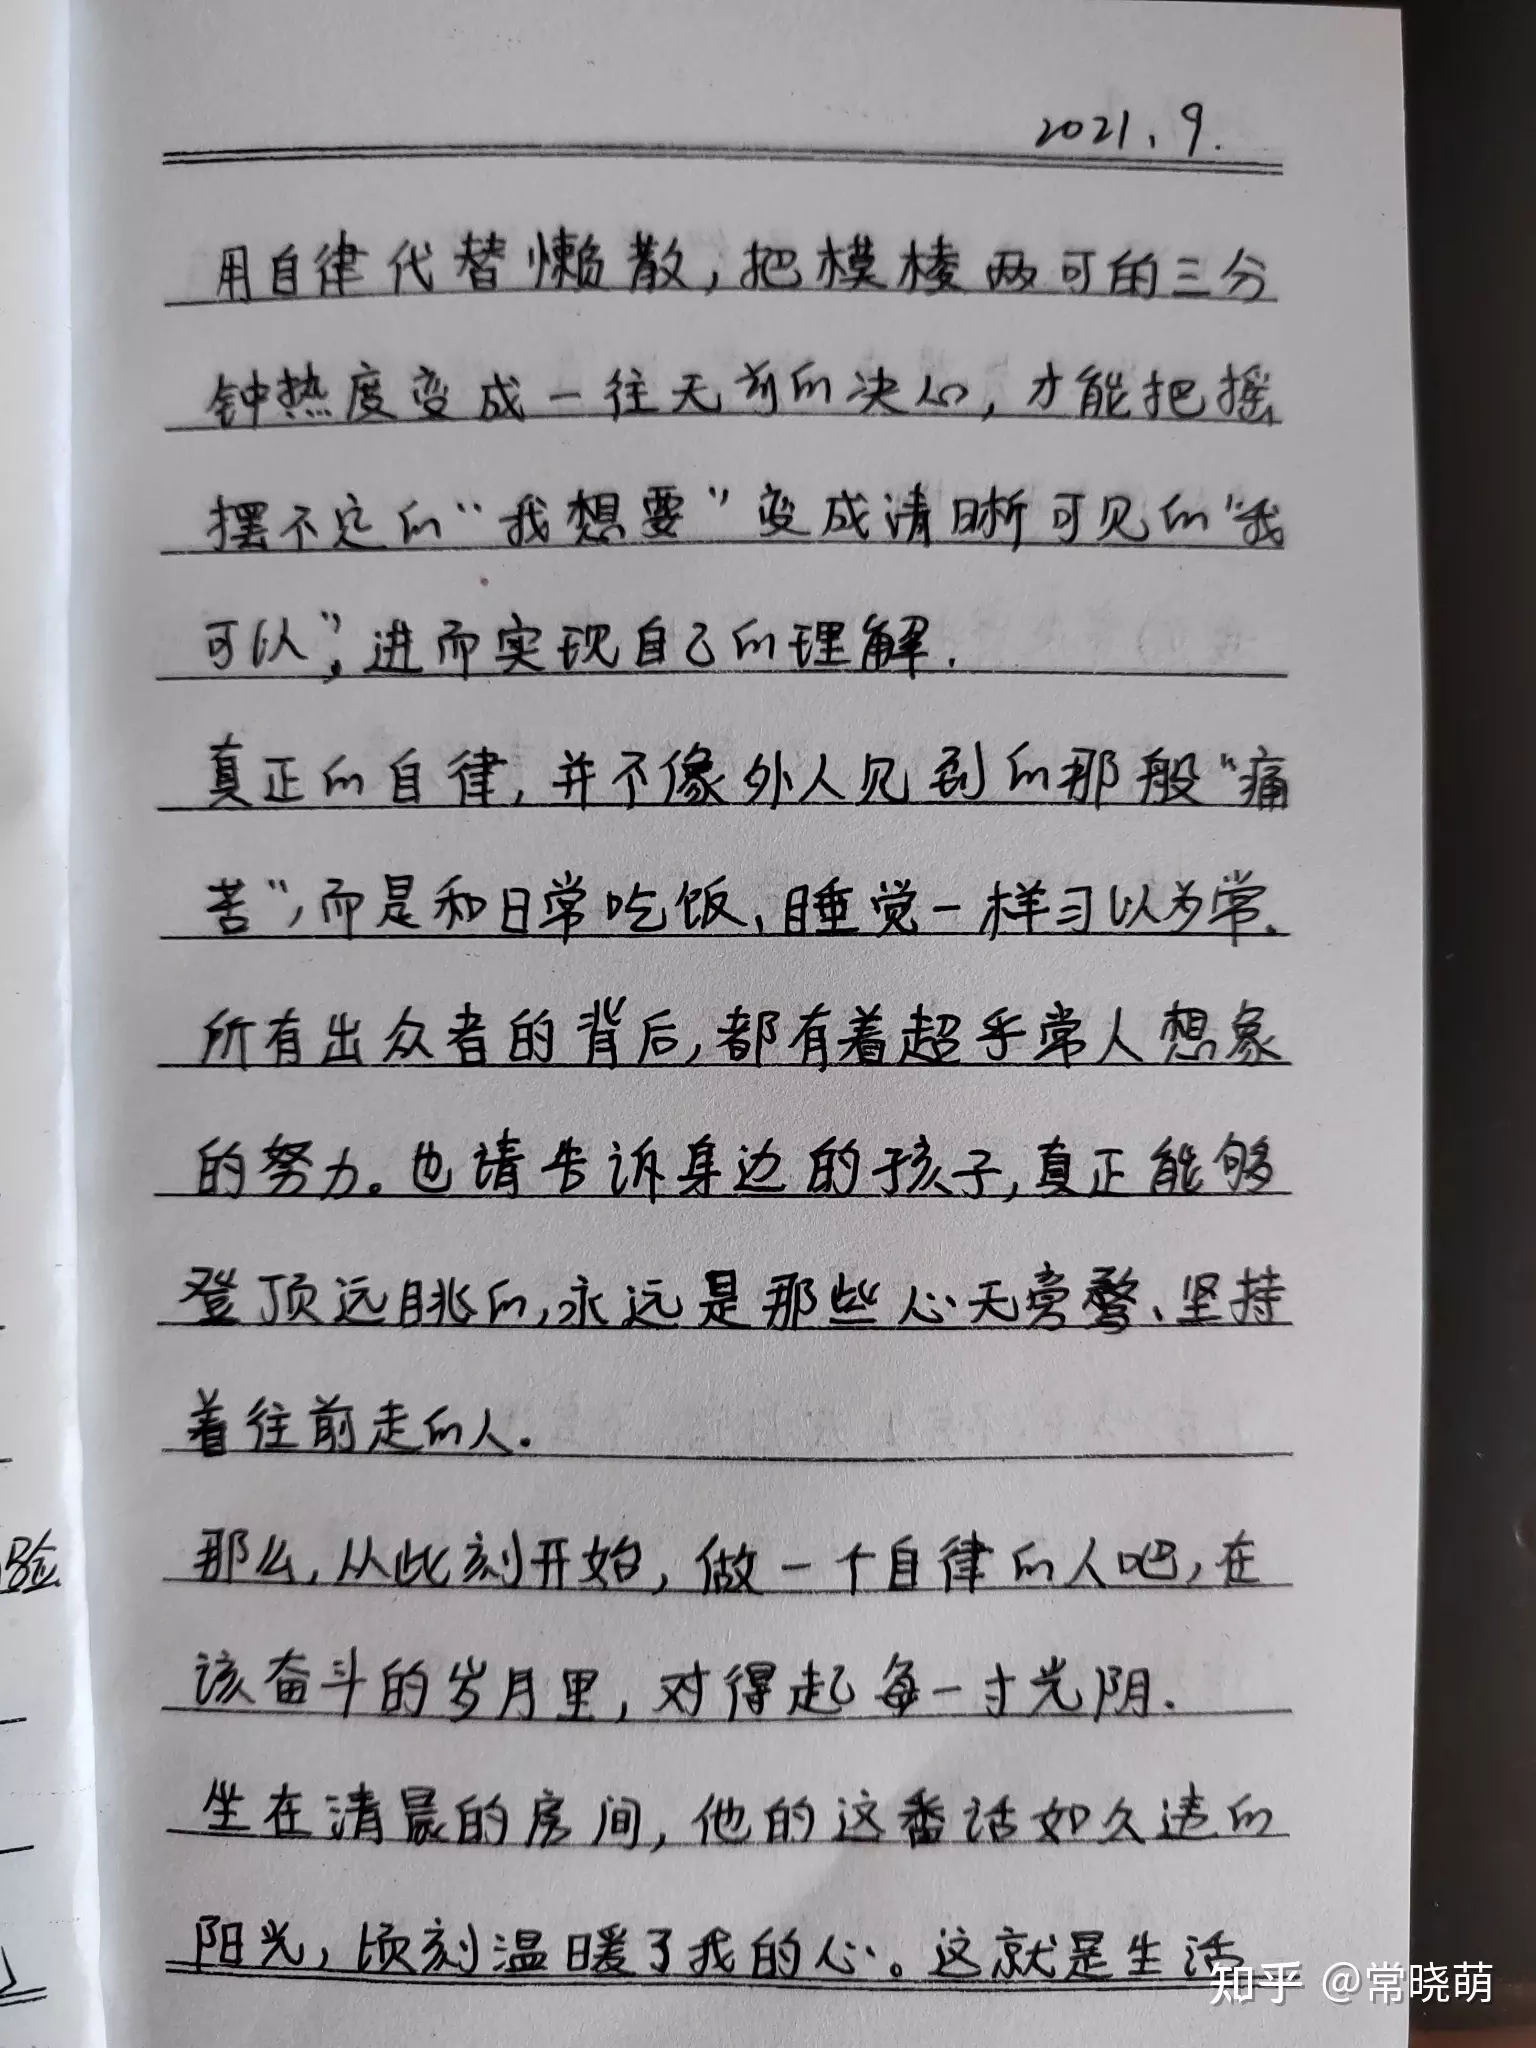 2021.9.
用自律代替懒散，把模棱两可的三分
钟热度变成一往无前的决心，才能把摇
摆不定的“我想要”变成清晰可见的“我
可以”，进而实现自己的理解.
真正的自律，并不像外人见到的那般“痛
苦”，而是和日常吃饭、睡觉一样习以为常.
所有出众者的背后，都有着超乎常人想象
的努力。也请告诉身边的孩子，真正能够
登顶远眺的，永远是那些心无旁骛、坚持
着往前走的人.
那么，从此刻开始，做一个自律的人吧，在
该奋斗的岁月里，对得起每一寸光阴.
坐在清晨的房间，他的这番话如久违的
阳光，顷刻温暖了我的心。这就是生活
验
知乎 @常晓萌